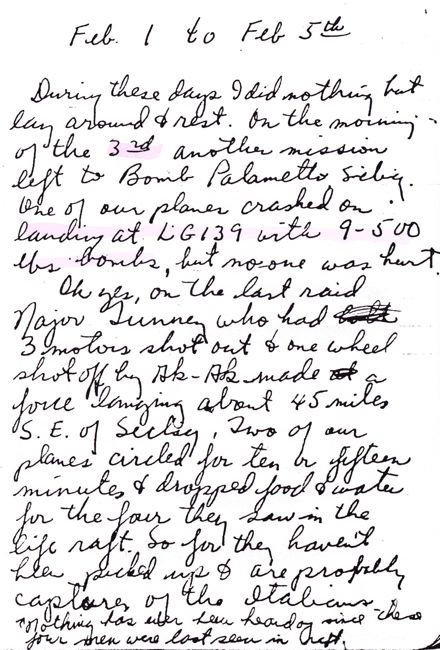 Feb. 1 to Feb 5th
During these days I did nothing but
lay around & rest. On the morning
of the 3rd another mission
left to Bomb Palametto Sicily.
One of our planes crashed on
landing at LG139 with 9-500
lbs bombs, but no one was hurt.
Oh yes, on the last raid
Major Tunney who had
3 motors shot out & one wheel
shot off by Ak-Ak made a
force langing about 45 miles
S. E. of Sicily, Two of our
planes circled for ten or fifteen
minutes & dropped food & water
for the four they saw in the
life raft. So far they haven't
been picked up & are probably
captures of the Italians
*Nothing has ever been heard of since these
four men were last seen in raft.